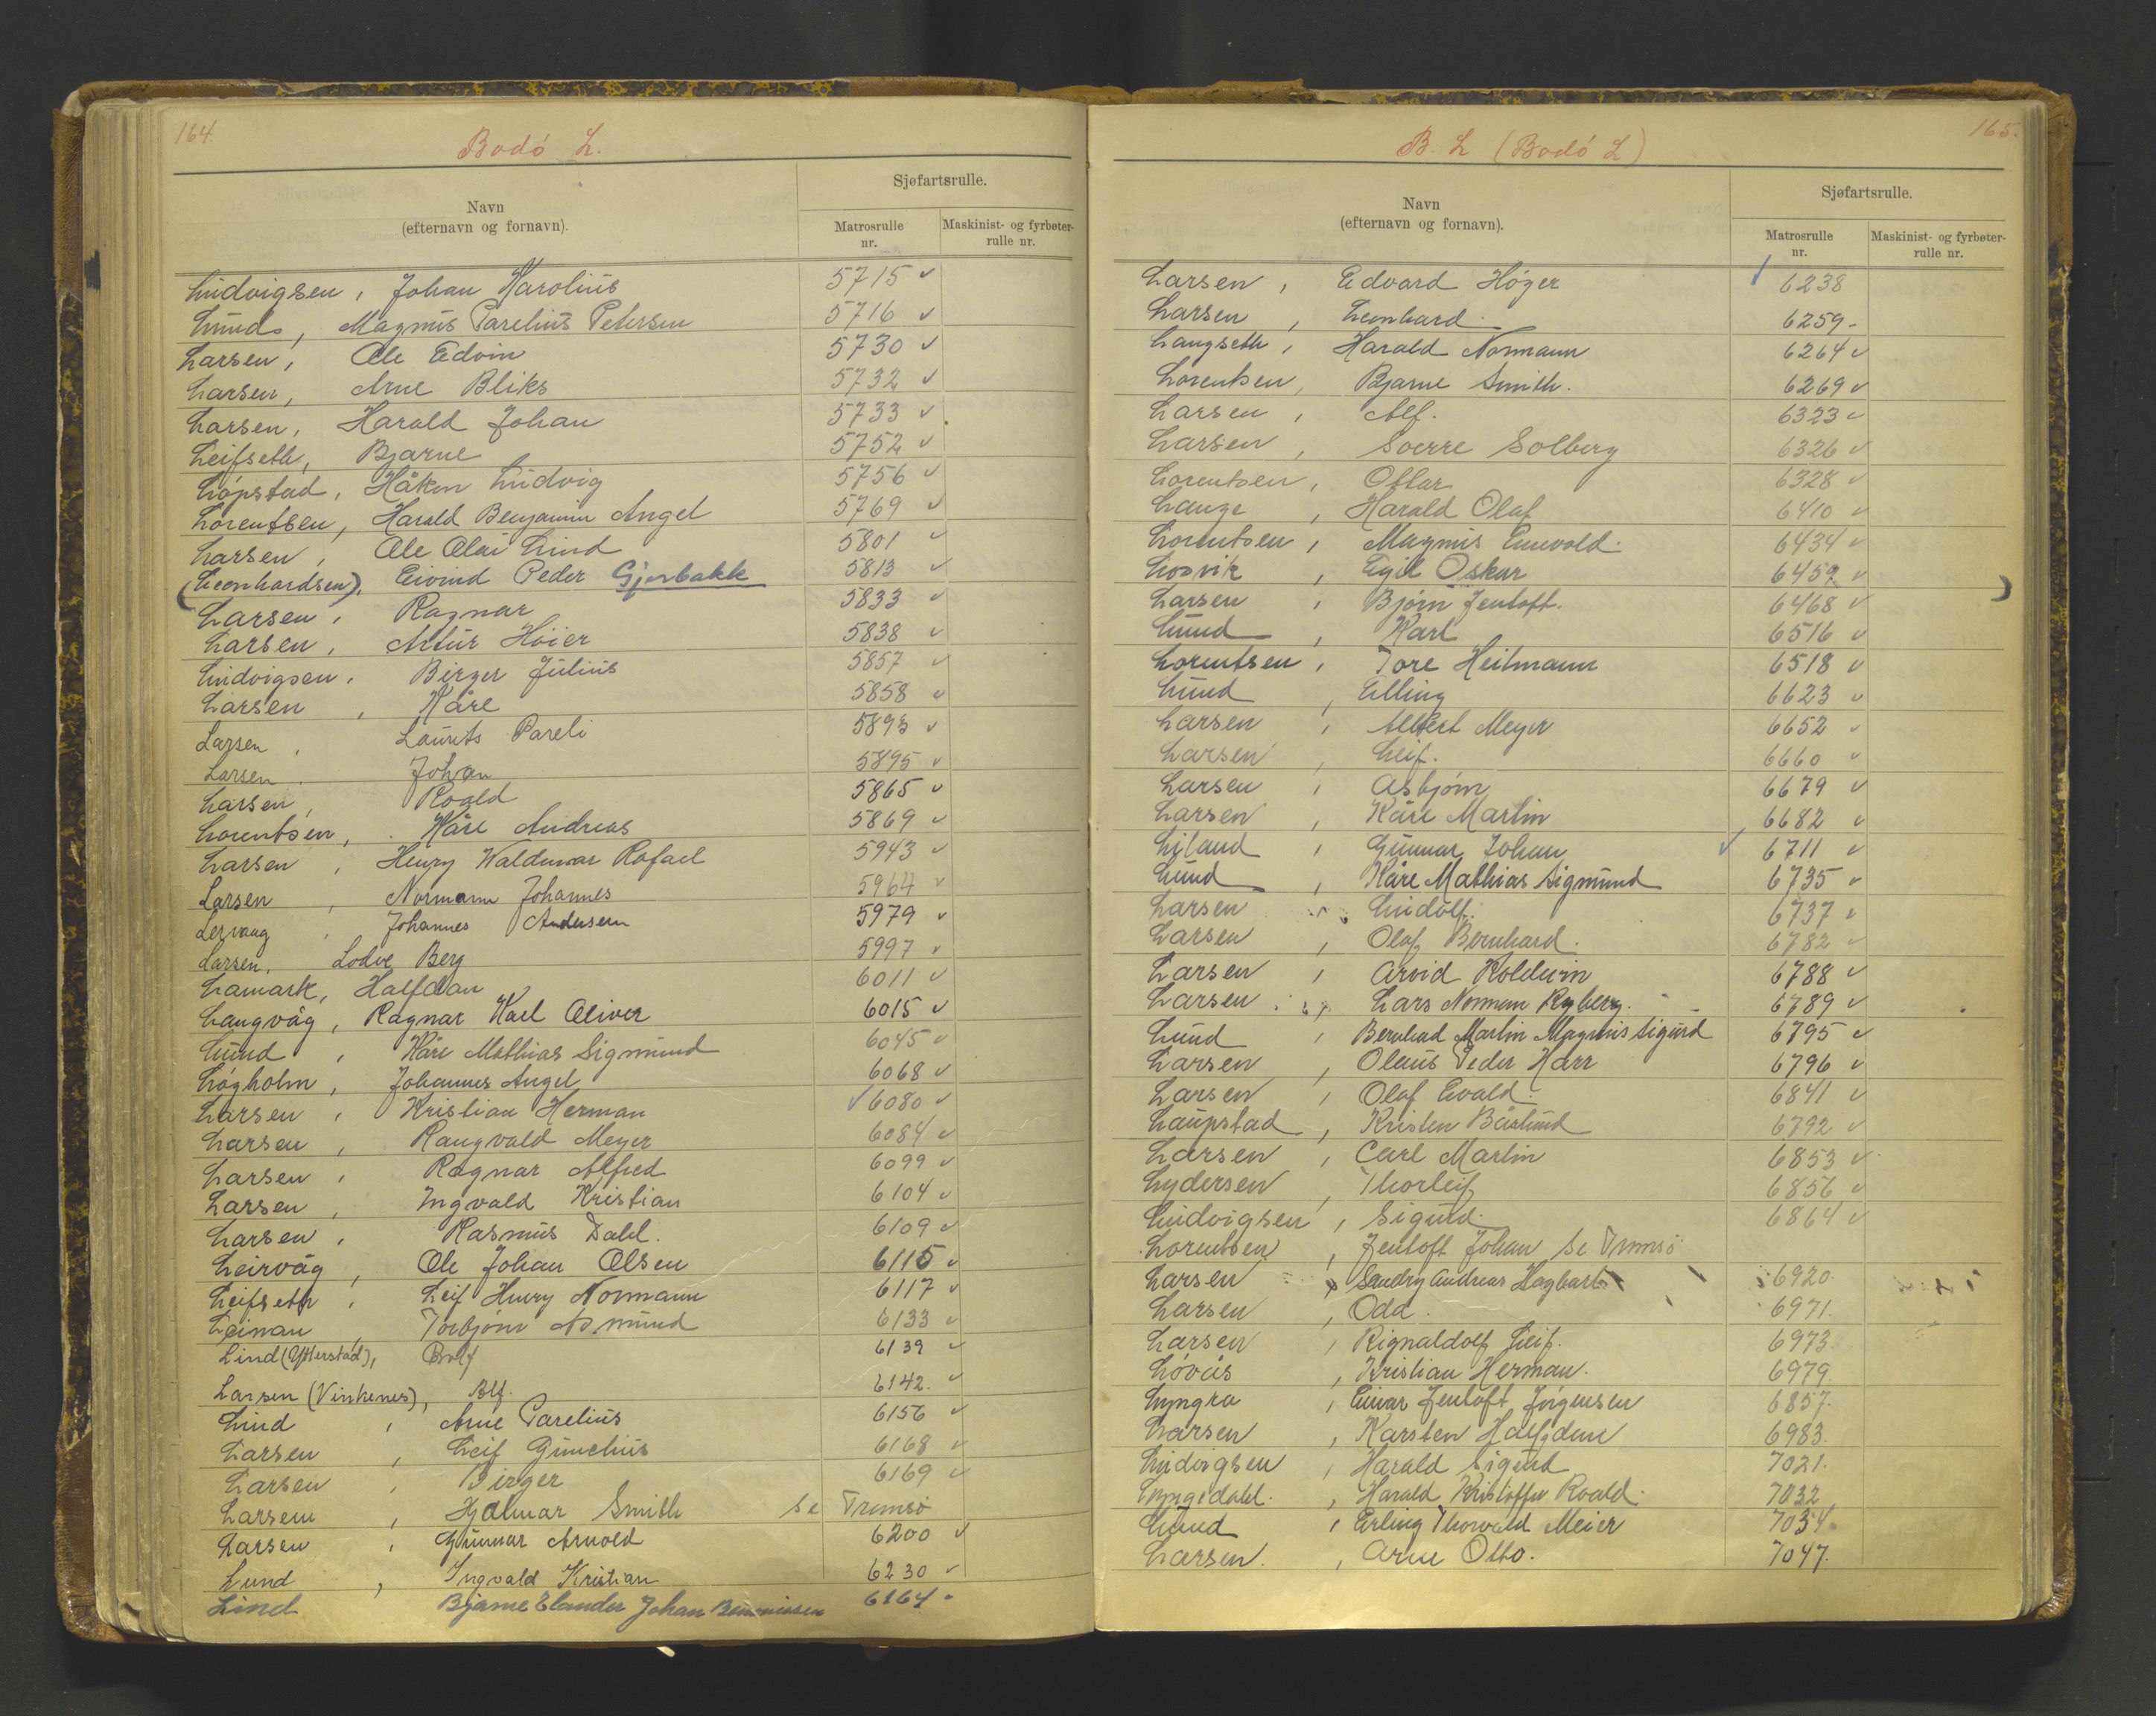 164.
Bodö L.
Navn
(efternavn og fornavn).
Sjøfartsrulle.
Matrosrulle
nr.
Maskinist- og fyrbøter-
rulle nr.
Ludvigsen, Johan Karolius 5715 ✓
Lund, Magnus Parelius Petersen 5716 ✓
Larsen, Ole Edvin 5730 ✓
Larsen, Arne Bliks 5732 ✓
Larsen, Harald Johan 5733 ✓
Leifseth, Bjarne 5752 ✓
Löpstad, Håkon Ludvig 5756 ✓
Lorentsen, Harald Benjamin Angel 5769 ✓
Larsen, Ole Olai Lind 5801 ✓
(Leonhardsen), Eivind Peder Gjerbakk 5813 ✓
Larsen, Ragnar 5833 ✓
Larsen, Artur Höier 5838 ✓
Ludvigsen, Birger Julius 5857 ✓
Larsen, Kåre 5858 ✓
Larsen, Laurits Pareli 5893 ✓
Larsen, Johan 5895 ✓
Larsen, Roald 5865 ✓
Lorentsen, Kåre Andreas 5869 ✓
Larsen, Henry Waldemar Rafael 5943 ✓
Larsen, Normann Johannes 5964 ✓
Lervaag, Johannes Andersen 5979 ✓
Larsen, Lodve Berg 5997 ✓
Lamark, Halfdan 6011 ✓
Langvåg, Ragnar Karl Oliver 6015 ✓
Lund, Kåre Mathias Sigmund 6045 ✓
Lögholm, Johannes Angel 6068 ✓
Larsen, Kristian Herman ✓ 6080 ✓
Larsen, Rangvald Meyer 6084 ✓
Larsen, Ragnar Alfred 6099 ✓
Larsen, Ingvald Kristian 6104 ✓
Larsen, Rasmus Dahl. 6109 ✓
Leirvåg, Ole Johan Olsen 6115 ✓
Leifseth, Leif Henry Normann 6117 ✓
Leinan, Torbjörn Asmund 6133 ✓
Lind (Ytterstad), Rolf 6139 ✓
Larsen (Vinkenes), Alf. 6142. ✓
Lind, Arne Parelius 6156 ✓
Larsen, Leif Gunelius 6168 ✓
Larsen, Birger 6169 ✓
Larsen, Hjalmar Smith Se Tromsö
Larsen, Gunnar Arnold 6200 ✓
Lund, Ingvald Kristian 6230 ✓
Lind Bjarne Elander Johan 6164 -
165.
B. L (Bodö L)
Navn
(efternavn og fornavn).
Sjøfartsrulle.
Matrosrulle
nr.
Maskinist- og fyrbøter-
rulle nr.
Larsen, Edvard Höyer ✓ 6238
Larsen, Leonhard. 6259 -
Langseth, Harald Normann 6264 ✓
Lorentsen, Bjarne Smith. 6269 ✓
Larsen, Alf. 6323 ✓
Larsen, Sverre Solberg 6326 ✓
Lorentsen, Ottar 6328 ✓
Lange, Harald Olaf 6410 ✓
Lorentsen, Magnus Enevold. 6434 ✓
Losvik, Egil Oskar 6459 ✓
Larsen, Björn Jentoft. 6468 ✓
Lund, Karl 6516 ✓
Lorentsen, Tore Heitmann 6518 ✓
Lund, Elling 6623 ✓
Larsen, Albert Meyer 6652 ✓
Larsen, Leif. 6660 ✓
Larsen, Asbjörn 6679 ✓
Larsen, Kåre Martin 6682 ✓
Liland, Gunnar Johan ✓ 6711 ✓
Lund, Kåre Mathias Sigmund 6735 ✓
Larsen, Ludolf. 6737 ✓
Larsen, Olaf Bernhard. 6782 ✓
Larsen, Arvid Koldevin 6788 ✓
Larsen, Lars Normann Ryberg. 6789 ✓
Lund, Bernhard Martin Magnus Sigurd 6795 ✓
Larsen, Olaus Peder Harr 6796 ✓
Larsen, Olaf Evald. 6841 ✓
Laupstad, Kristen Båslund 6792 ✓
Larsen, Carl Martin 6853 ✓
Lydersen, Thorleif 6856 ✓
Ludvigsen, Sigurd. 6864 ✓
Lorentsen, Jentoft Johan Se Tromsö
Larsen, Sendry Andreas Hagbart 6920.
Larsen, Odd. 6971.
Larsen, Rignaldolf Leif. 6973.
Lövås, Kristian Herman. 6979.
Lyngra, Einar Jentoft Jörgensen 6857.
Larsen, Karsten Halfdan 6983.
Ludvigsen, Harald Sigurd 7021.
Lyngedahl., Harald Kristoffer Roald. 7032
Lund, Erling Thorvald Meier 7034.
Larsen., Arne Otto. 7047.